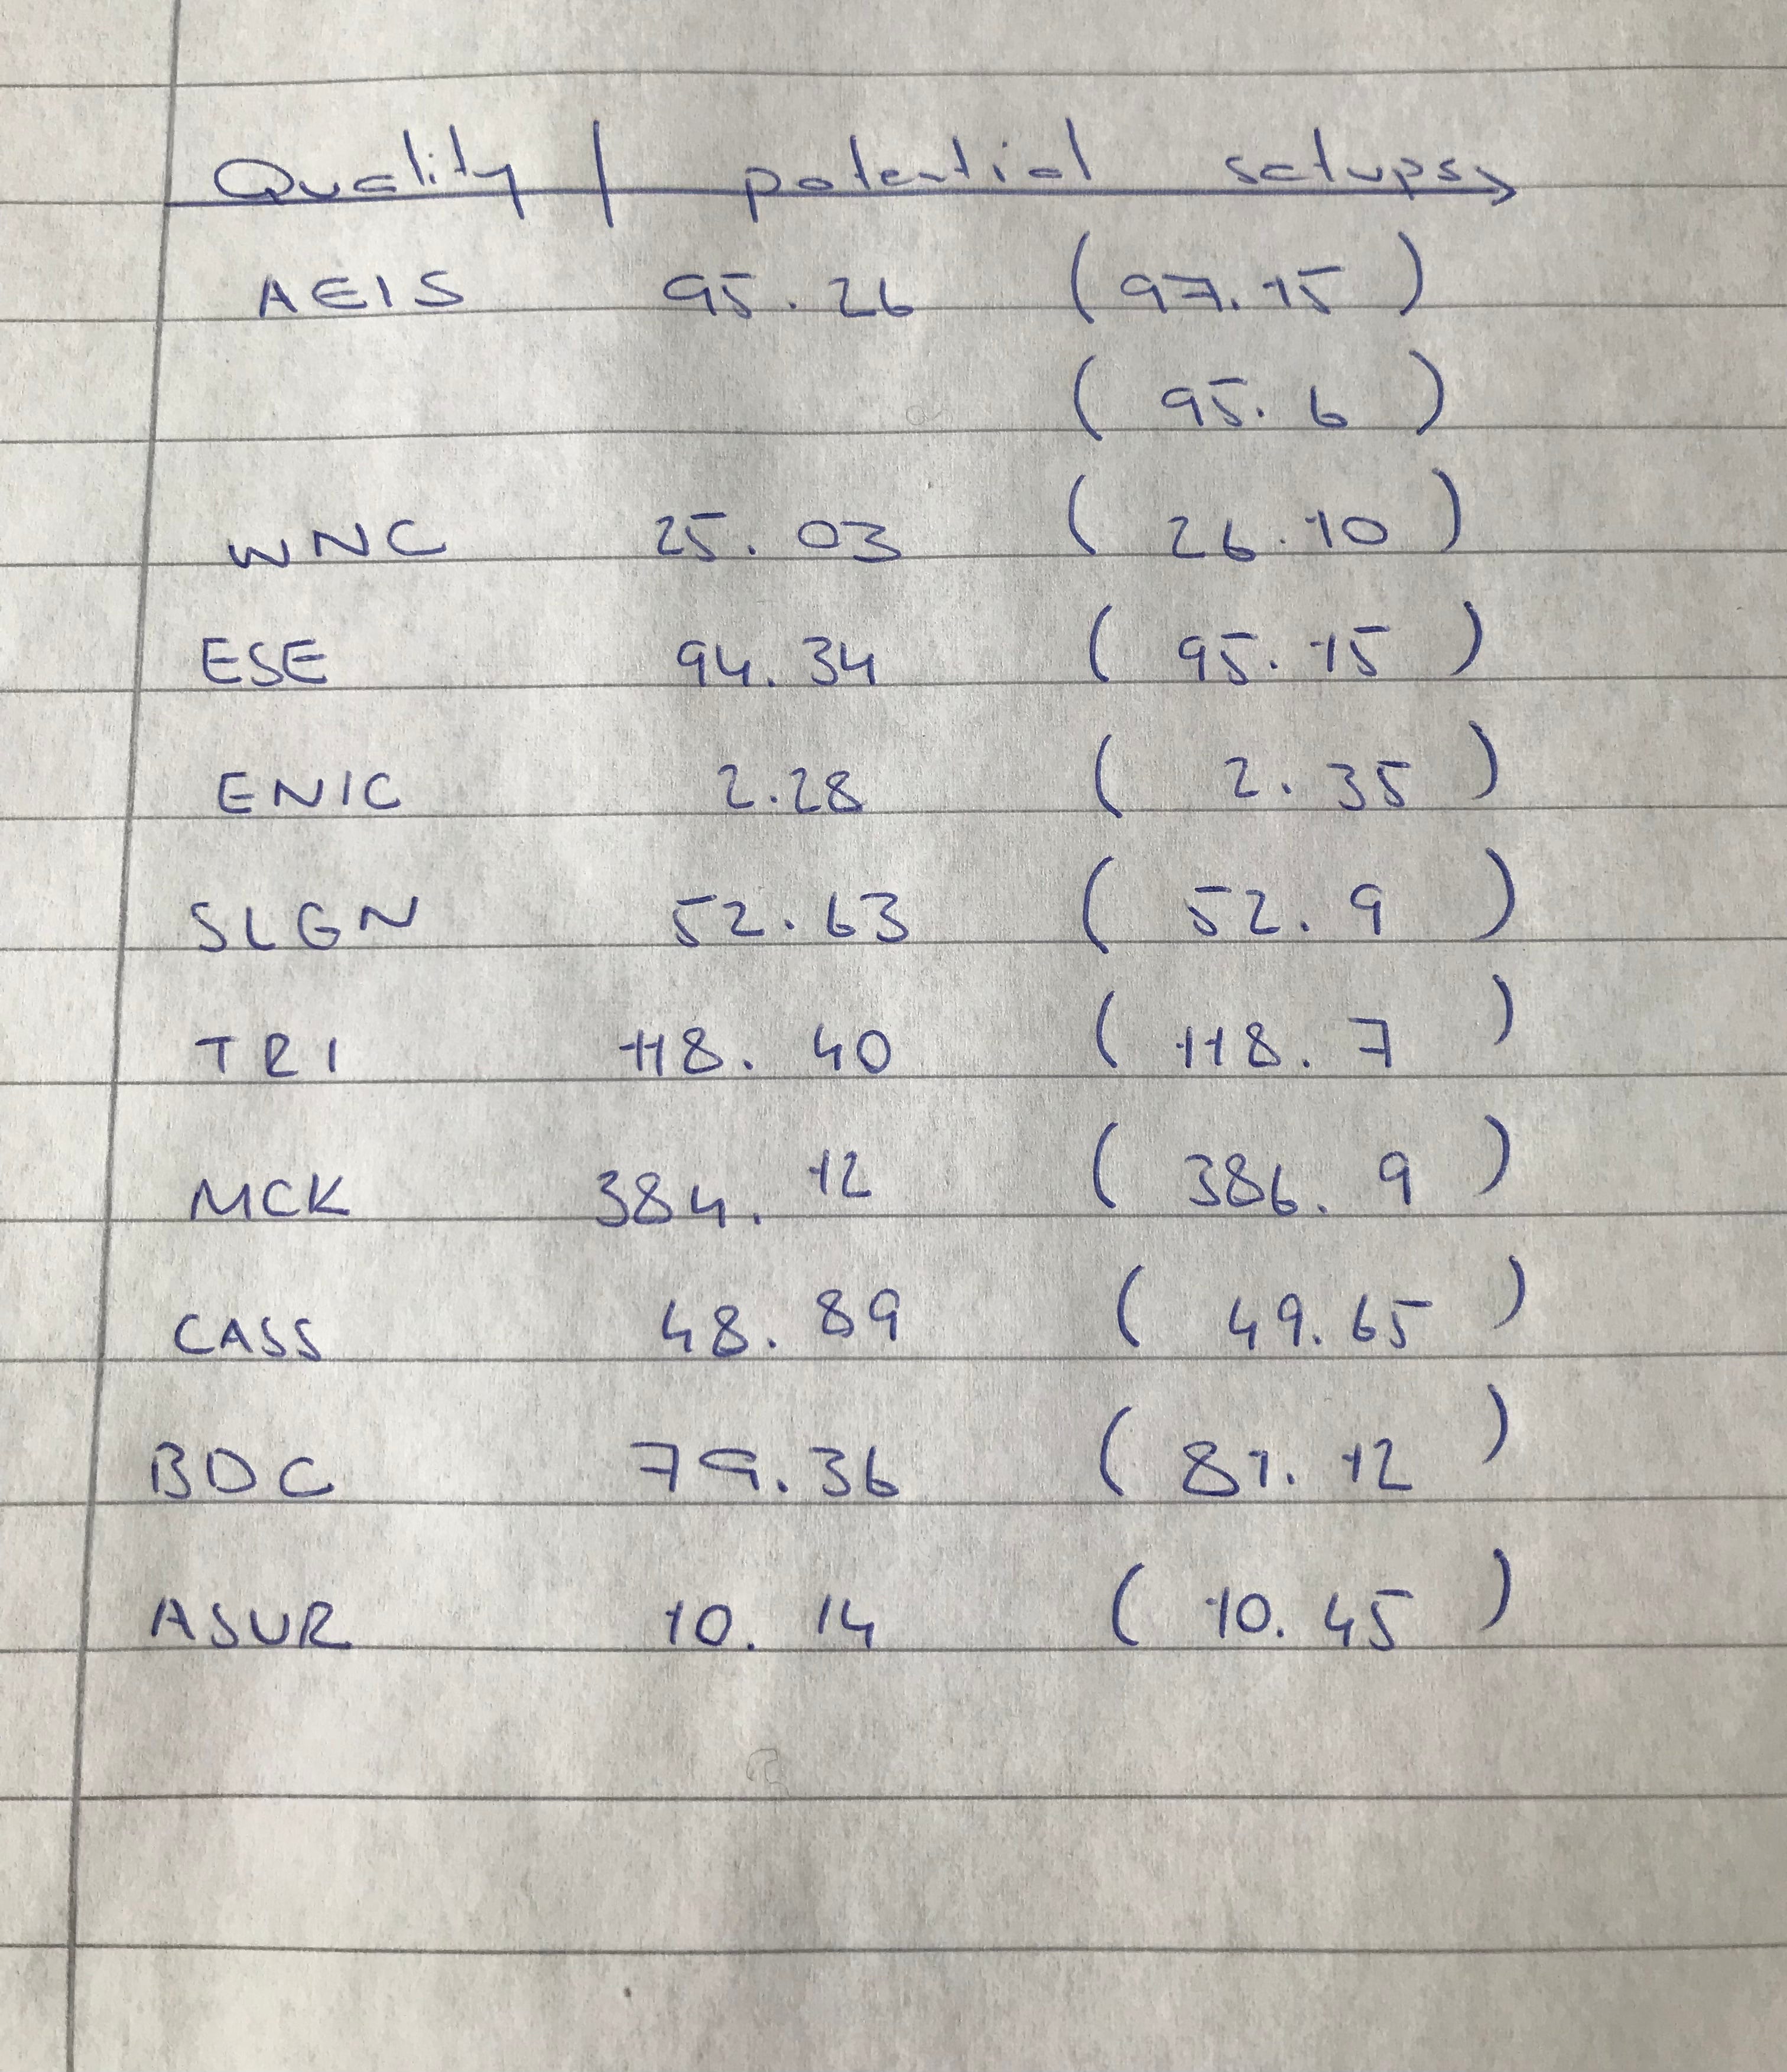 Quality / potential setups
AEIS 95.26 (97.15)
(95.6)
WNC 25.03 (26.10)
ESE 94.34 (95.15)
ENIC 2.28 (2.35)
SLGN 52.63 (52.9)
TRI 118.40 (118.7)
MCK 384.12 (386.9)
CASS 48.89 (49.65)
BDC 79.36 (81.12)
ASUR 10.14 (10.45)